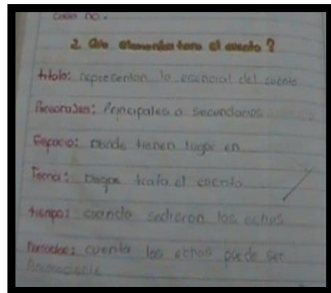 cosas no.
2. Que elementos tiene el cuento?
titolo: representan lo esencial del cuento
Personajes: Principales o secundarios
Espacio: Donde tienen lugar en
Tema: Deque trata el cuento
tiempo: cuando sedieron los echos
Narrador: cuenta los echos puede ser